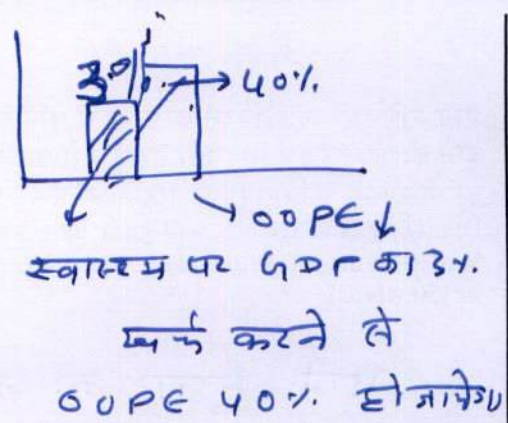 3%
→ 40%
→ OOPE ↓
स्वास्थ्य पर GDP का 3%
खर्च करने से
OOPE 40% हो जायेगा